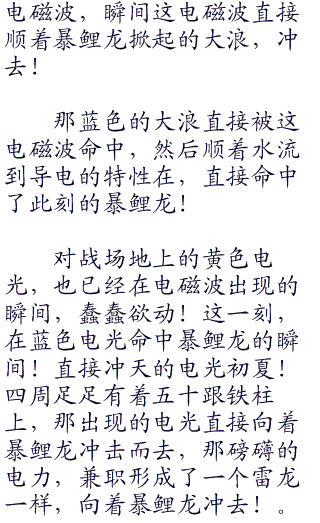 电磁波，瞬间这电磁波直接
顺着暴鲤龙掀起的大浪，冲
去！
那蓝色的大浪直接被这
电磁波命中，然后顺着水流
到导电的特性在，直接命中
了此刻的暴鲤龙！
对战场地上的黄色电
光，也已经在电磁波出现的
瞬间，蠢蠢欲动！这一刻，
在蓝色电光命中暴鲤龙的瞬
间！直接冲天的电光初夏！
四周足足有着五十跟铁柱
上，那出现的电光直接向着
暴鲤龙冲击而去，那磅礴的
电力，兼职形成了一个雷龙
一样，向着暴鲤龙冲去！。